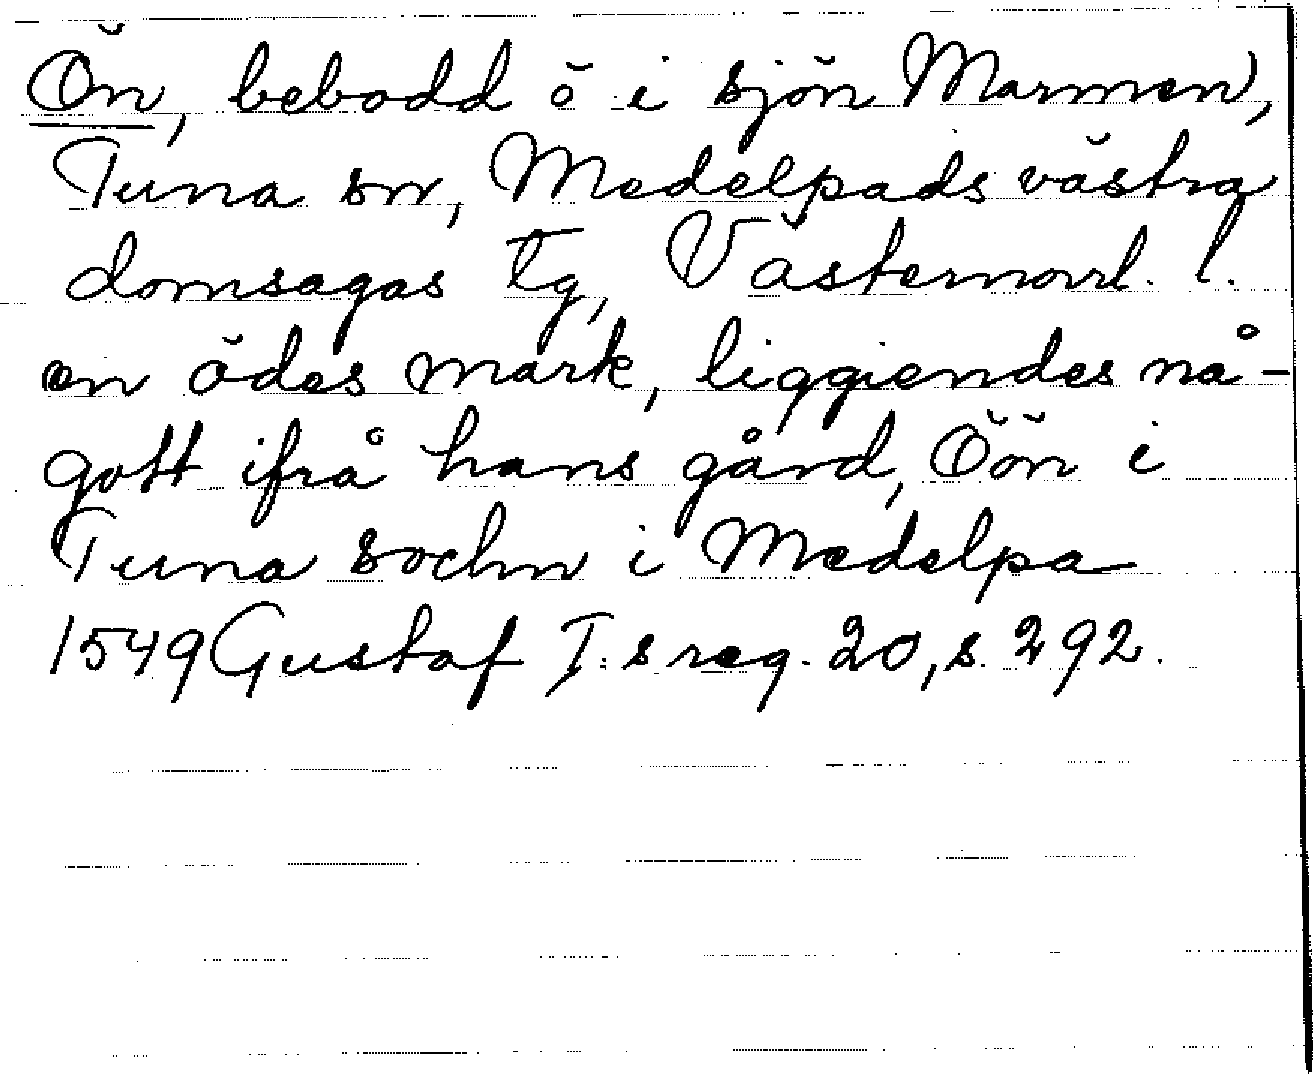 Ön, bebodd ö i sjön Marmen,
Tuna sn, Medelpads västra
domsagas tg, Västernorrl. l.
en ödes mark, liggiendes nå-
gott ifrå hans gård, Öön i
Tuna sochn i Medelpa
1549 Gustaf I:s reg. 20, s. 292.